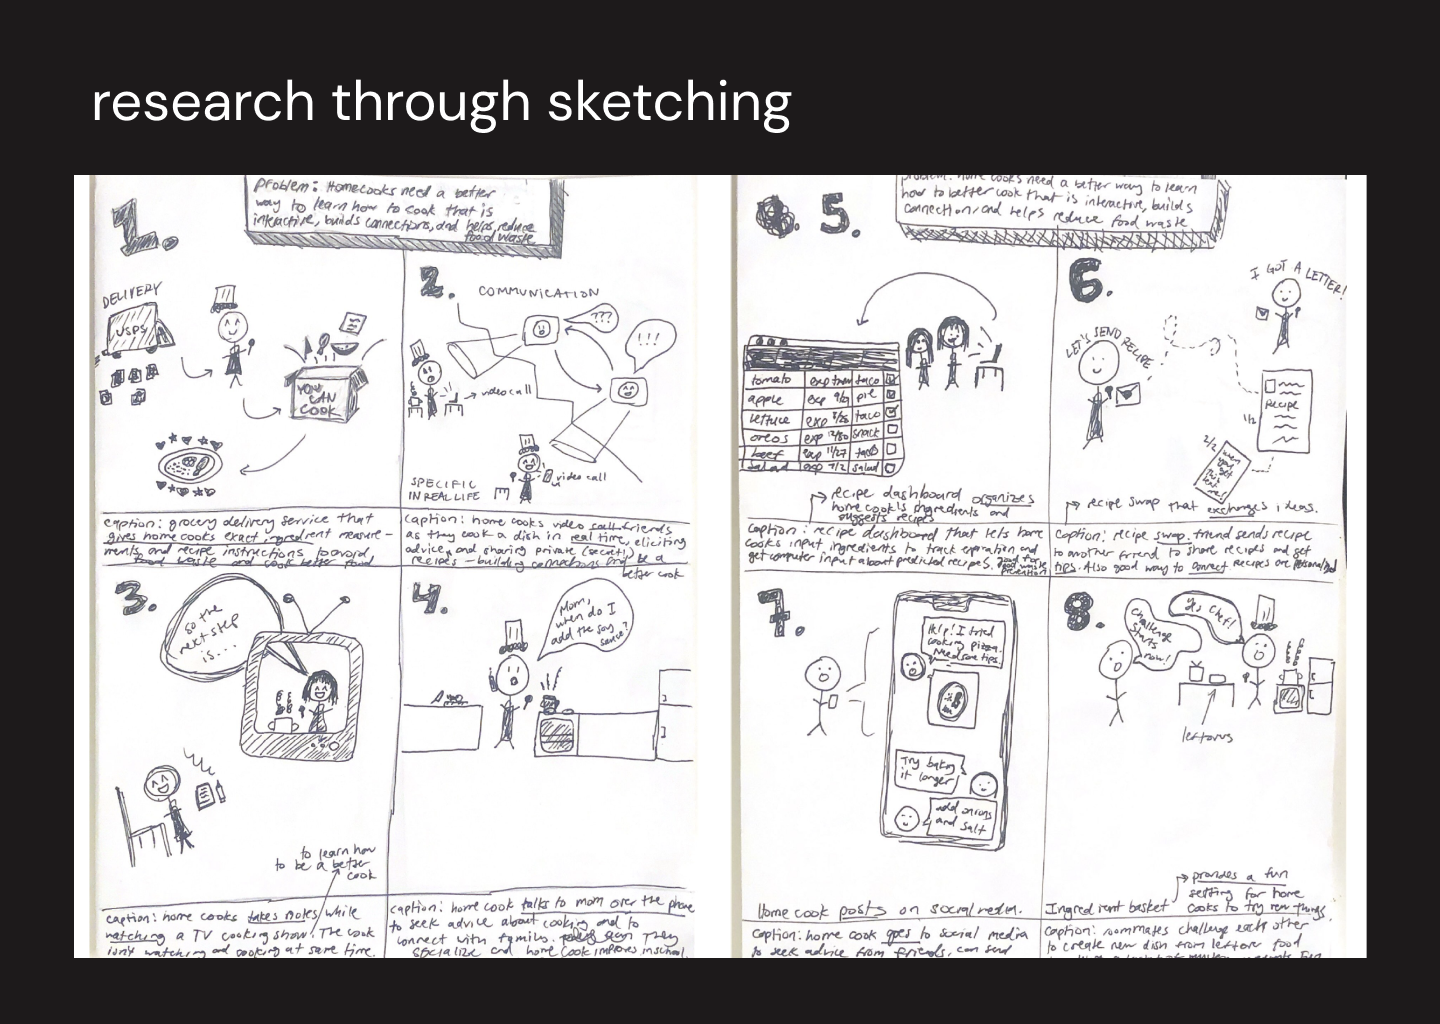 research through sketching
Problem: Homecooks need a better
way to learn how to cook that is
interactive, builds connections, and helps reduce
food waste.
1.
DELIVERY
USPS
YOU
CAN
COOK
caption: grocery delivery service that
gives home cooks exact ingredient measure-
ments and recipe instructions to avoid
food waste and cook better food
2.
COMMUNICATION
???
!!!
→ video call
video call
SPECIFIC
IN REAL LIFE
caption: home cooks video call friends
as they cook a dish in real time, eliciting
advice, and sharing private (secret!)
recipes – building connections and be a
better cook
3.
so the
next step
is....
to learn how
to be a better
cook
caption: home cooks takes notes while
watching a TV cooking show. The cook
isn't watching and cooking at same time.
4.
Mom,
when do I
add the soy
sauce?
caption: home cook talks to mom over the phone
to seek advice about cooking and to
connect with families. They
specialize and home cook improves in school.
problem: home cooks need a better way to learn
how to better cook that is interactive, builds
connection, and helps reduce food waste
5.
tomato exp taco
apple exp 9/9 pie
lettuce exp 8/28 taco
oreos exp 12/30 snack
beef exp 11/27 taco
salad exp 7/2 salad
recipe dashboard organizes
home cook's ingredients and
suggests recipes
caption: recipe dashboard that lets home
cooks input ingredients to track expiration and
get computer input about predicted recipes.
good for
food waste
prevention
6.
I GOT A LETTER!
LET'S SEND RECIPE
Recipe
1/2
2/2
when
you
get
this
text
me!
recipe swap that exchanges ideas.
caption: recipe swap. friend sends recipe
to another friend to share recipes and get
tips. Also good way to connect recipes are personalized
7.
Help! I tried
cooking pizza.
Need some tips.
Try baking
it longer
add onions
and salt
Home cook posts on social media.
caption: home cook goes to social media
to seek advice from friends, can send
8.
challenge
starts
now!
Yes Chef!
leftovers
provides a fun
setting for home
Ingredient basket cooks to try new things.
caption: roommates challenge each other
to create new dish from leftover food